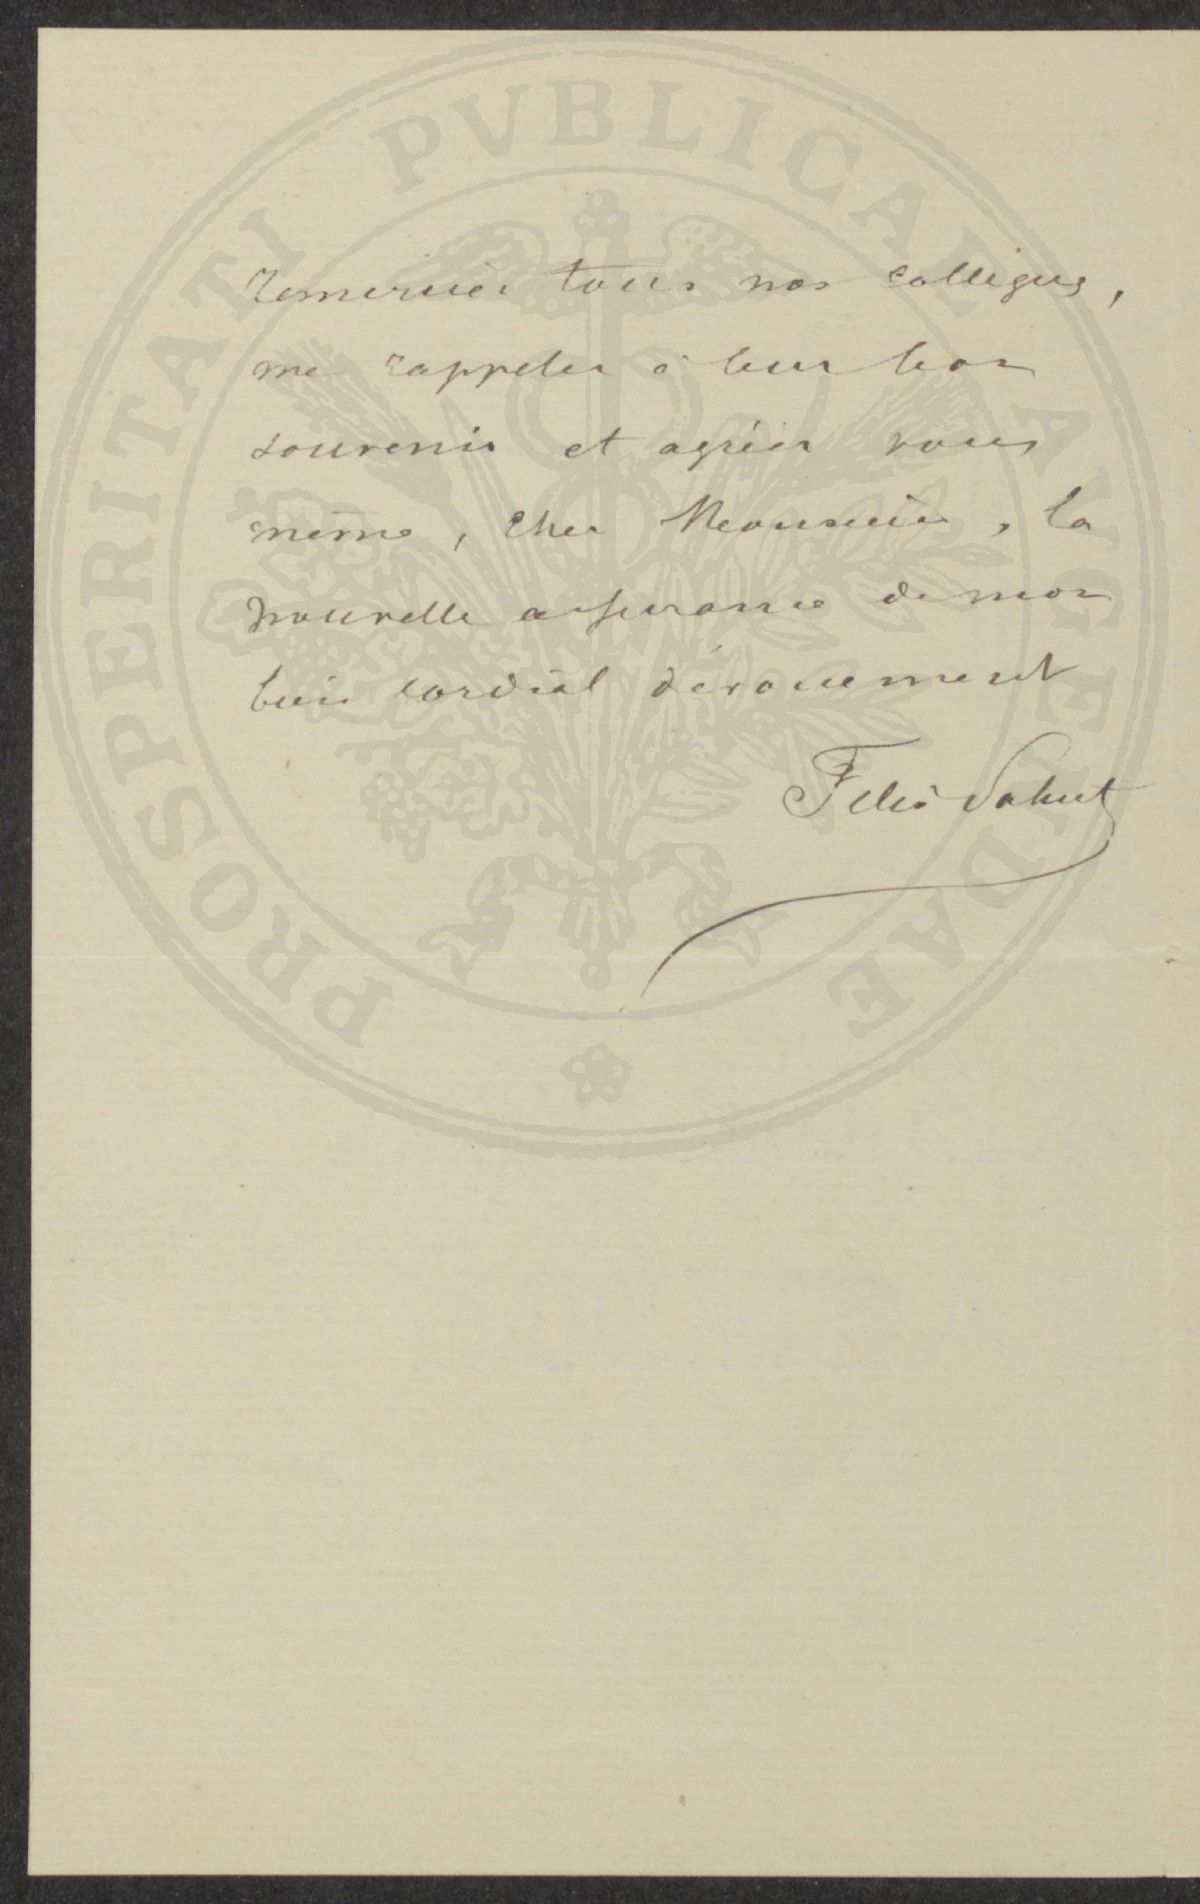 remercier tous nos collègues,
me rappeler à leur bon
souvenir et agréer vous
même, cher Monsieur, la
nouvelle assurance de mon
bien cordial dévouement
Felix Sahut
PROSPERITATI PVBLICAE AVGENDAE